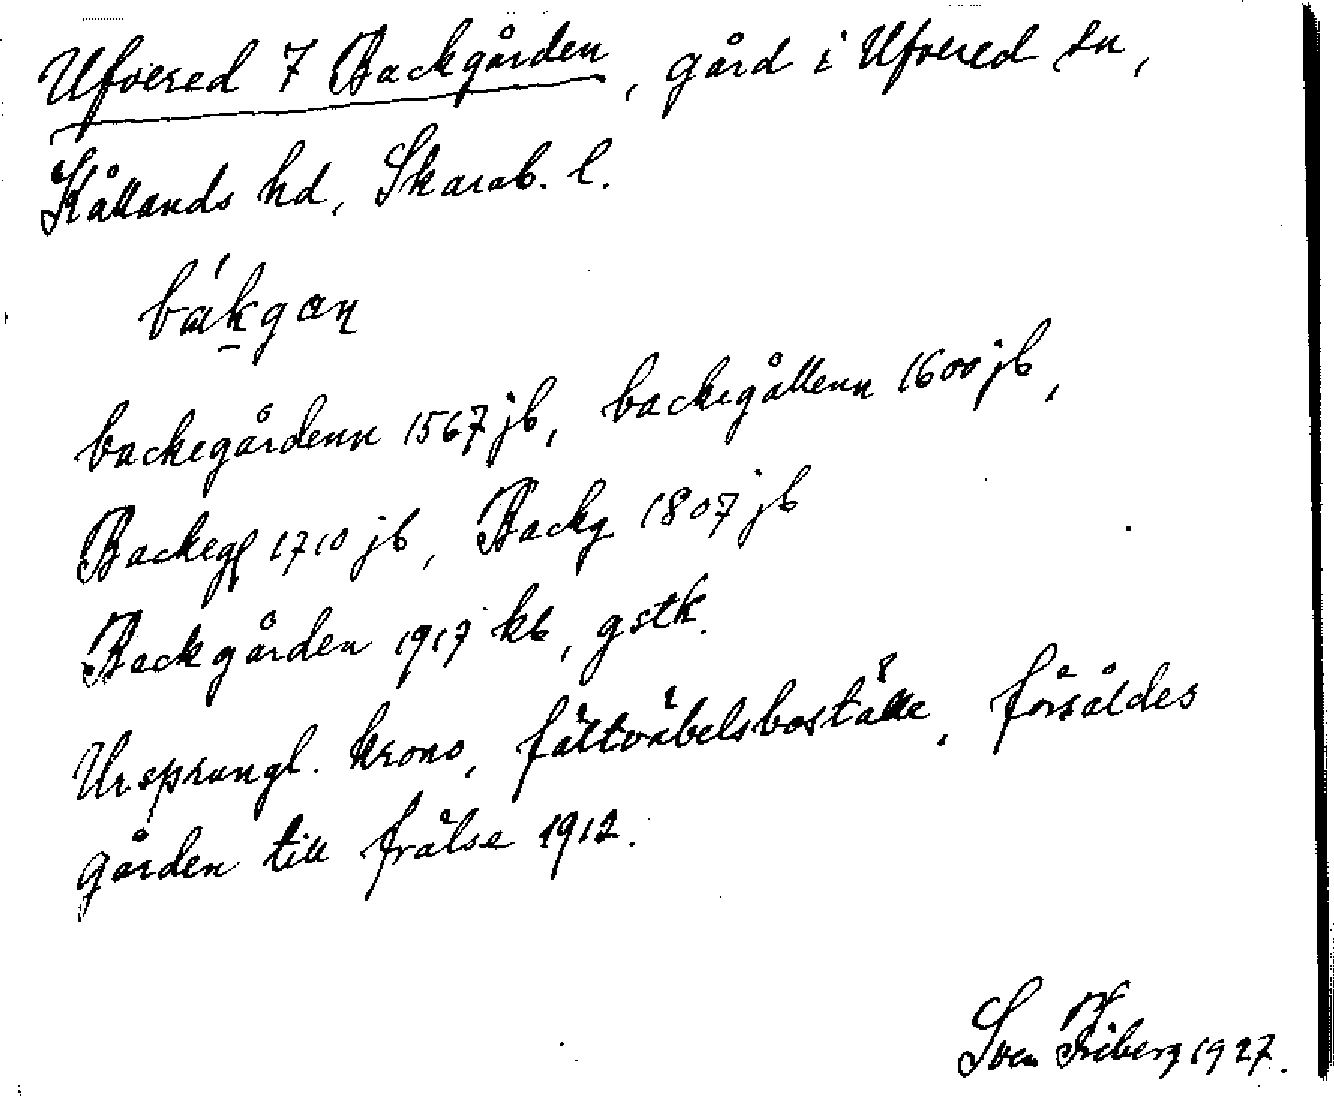 Ufvered 7 Backgården, gård i Ufvered sn,
Kållands hd, Skarab. l.
bákgaṇ
backegårdenn 1567 jb, backegållenn 1600 jb,
Backeg 1710 jb, Backg 1807 jb
Backgården 1917 kb, gstk.
Ursprungl. krono, fältväbelsboställe, försåldes
gården till frälse 1912.
Sven Friberg 1927.